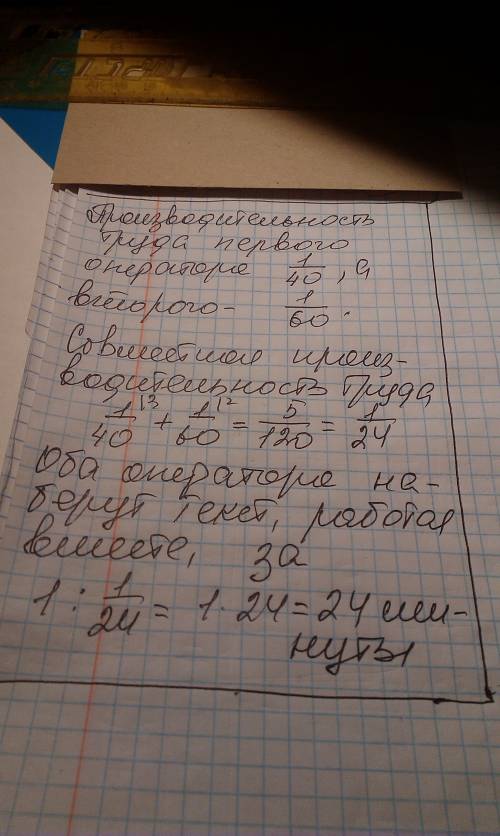 Производительность
труда первого
оператора 1/40, а
второго- 1/60.
Совместная произ-
водительность труда
1/40 |3 + 1/60 |2 = 5/120 = 1/24
Оба оператора на-
берут текст, работая
вместе, за
1 : 1/24 = 1 · 24 = 24 ми-
нуты